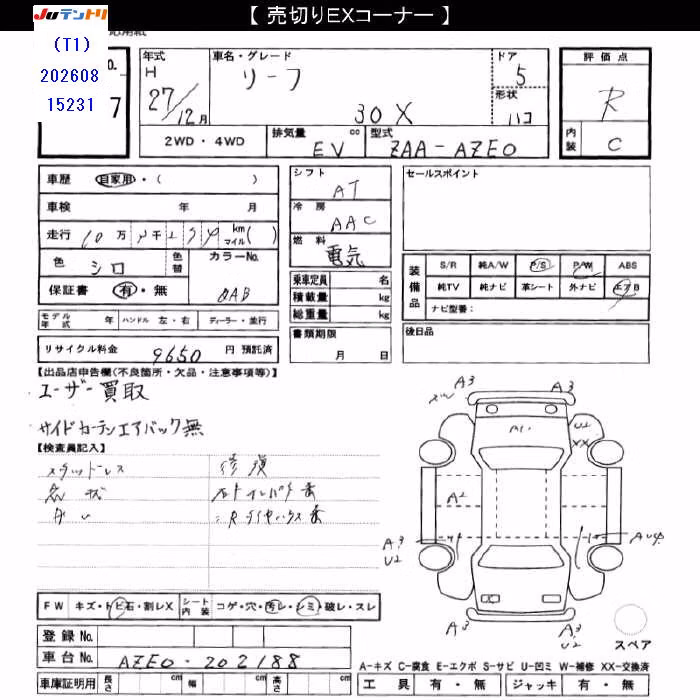 【 売切りEXコーナー 】
Juテントリ
(T1)
202608
15231
No.
7
年式
H
27/12月
車名・グレード
リーフ
30X
ドア
5
形状
ハコ
評価点
R
内装
C
2WD・4WD
排気量
cc
EV
型式
ZAA-AZE0
車歴 自家用・( )
車検 年 月
走行
万
千
km
マイル( )
色
シロ
色替
カラーNo.
QAB
保証書 有・無
シフト
AT
冷房
AAC
燃料
電気
乗車定員 名
積載量 kg
総重量 kg
書類期限
月 日
セールスポイント
装備品
S/R 純A/W P/S P/W ABS
純TV 純ナビ 革シート 外ナビ エアB
ナビ型番:
後日品
モデル年式 年 ハンドル 左・右 ディーラー・並行
リサイクル料金 9650 円 預託済
【出品店申告欄(不良箇所・欠品・注意事項等)】
ユーザー買取
サイドカーテンエアバック無
【検査員記入】
スタッドレス
修復
A3
A3
U2
XX
A2
A3
U2
A3
A3
U2
スペア
FW キズ・トビ石・割レX
シート内装 コゲ・穴・汚レ・シミ・破レ・スレ
登録No.
車台No. AZE0-202188
車庫証明用 長さ cm 幅 cm 高さ cm
A-キズ C-腐食 E-エクボ S-サビ U-凹ミ W-補修 XX-交換済
工具 有・無 ジャッキ 有・無